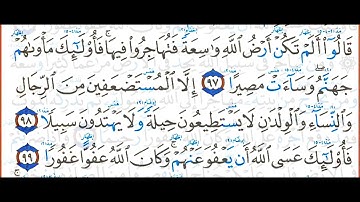 قَالُوٓا۟ أَلَمْ تَكُنْ أَرْضُ ٱللَّهِ وَٰسِعَةً فَتُهَاجِرُوا۟ فِيهَا ۚ فَأُو۟لَٰٓئِكَ مَأْوَىٰهُمْ
جَهَنَّمُ ۖ وَسَآءَتْ مَصِيرًا ٩٧ إِلَّا ٱلْمُسْتَضْعَفِينَ مِنَ ٱلرِّجَالِ
وَٱلنِّسَآءِ وَٱلْوِلْدَٰنِ لَا يَسْتَطِيعُونَ حِيلَةً وَلَا يَهْتَدُونَ سَبِيلًا ٩٨
فَأُو۟لَٰٓئِكَ عَسَى ٱللَّهُ أَن يَعْفُوَ عَنْهُمْ ۚ وَكَانَ ٱللَّهُ عَفُوًّا غَفُورًا ٩٩